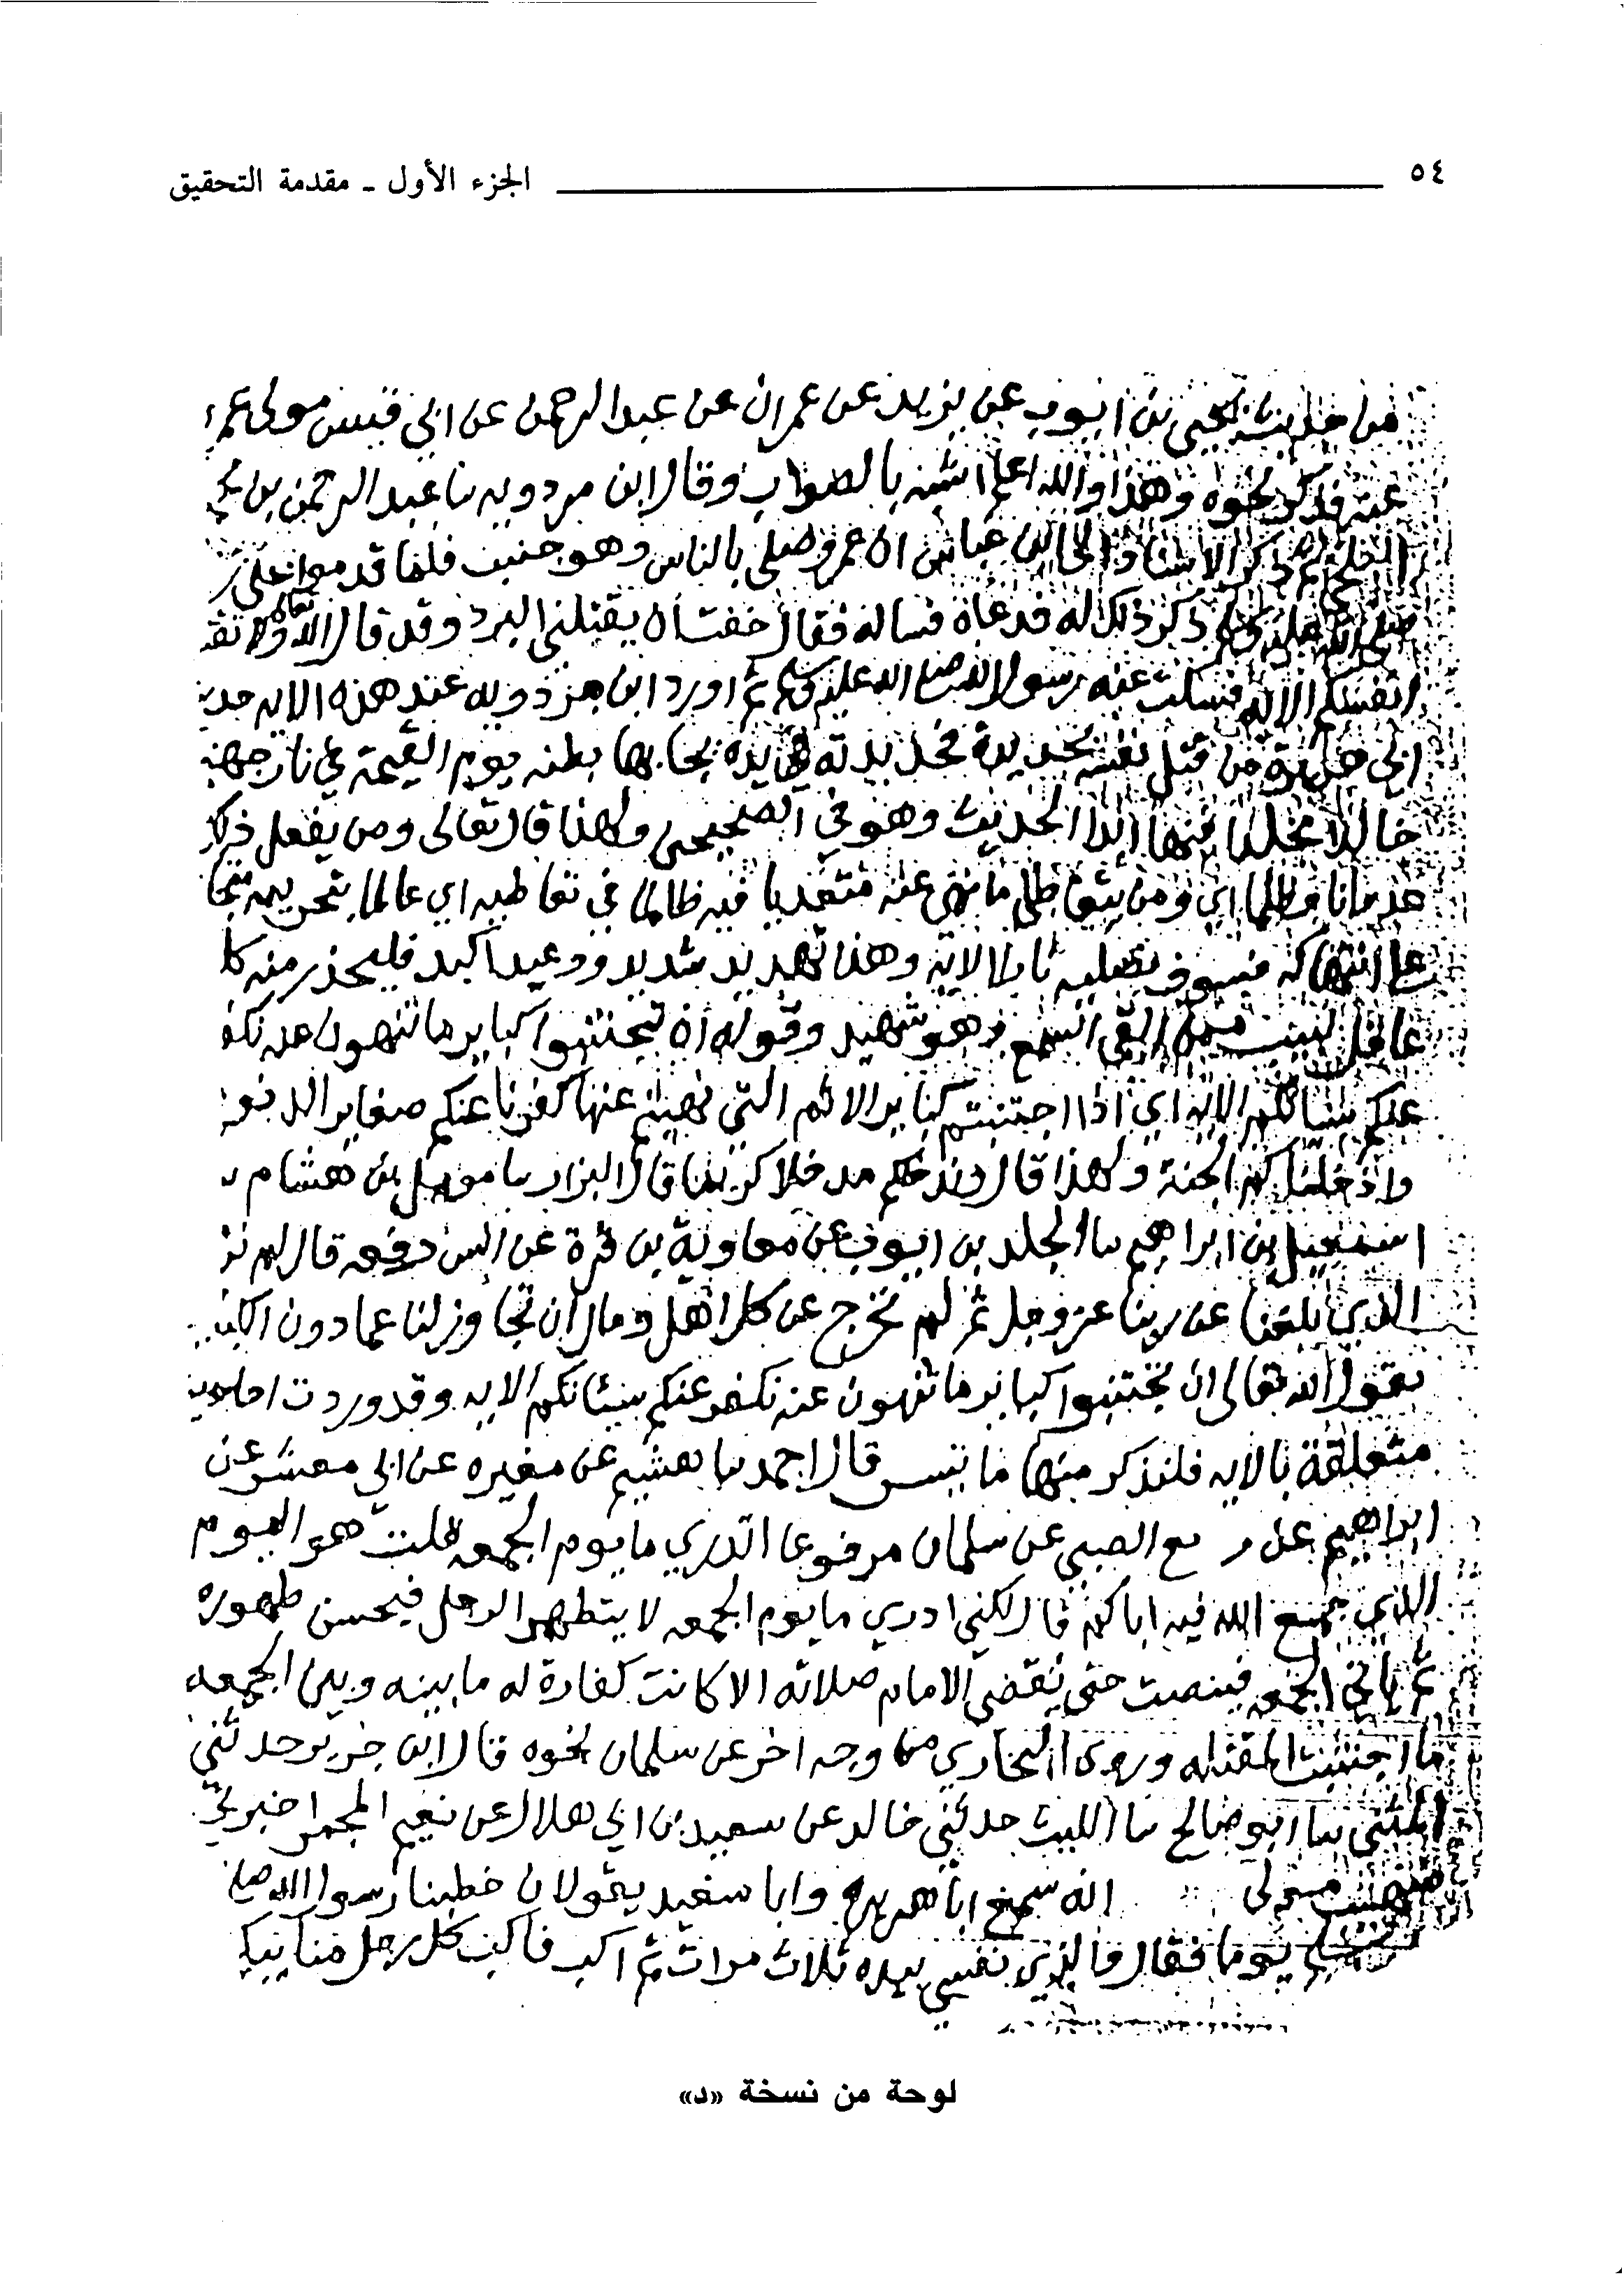 ٥٤ الجزء الأول - مقدمة التحقيق
من حديث يحيى بن ايوب عن يزيد عن عمران عن عبد الرحمن عن ابي قيس مولى عمرو
عنه فذكر نحوه وهذا والله اعلم اشبه بالصواب وقال ابن مردويه نا عبد الرحمن بن
ذكر الاسناد الى ابن عباس ان عمرو صلى بالناس وهو جنب فلما قدموا على ر
صلى الله عليه وسلم ذكر ذلك له فدعاه فساله فقال خفت ان يقتلني البرد وقد قال الله تعالى ولا تقتلوا
انفسكم الاية فسكت عنه رسول الله صلى الله عليه وسلم ثم اورد ابن مردويه عند هذه الايه حديث
ابي هريرة من قتل نفسه بحديدة فحديدته في يده يجا بها بطنه يوم القيمة في نار جهنم
خالدا مخلدا فيها ابدا الحديث وهو في الصحيحين ولهذا قال تعالى ومن يفعل ذلك
عدوانا وظلما اي ومن يتعاطى ما نهى عنه متعديا فيه ظالما في تعاطيه اي عالما بتحريمه متجا
على انتهاكه فسوف نصليه نارا الاية وهذا تهديد شديد ووعيد اكيد فليحذر منه كل
عاقل لبيب ممن القى السمع وهو شهيد وقوله ان تجتنبوا كباير ما تنهون عنه نكفر
عنكم سياتكم الايه اي اذا اجتنبتم كباير الاثم التي نهيتم عنها كفرنا عنكم صغاير الذنوب
وادخلناكم الجنة ولهذا قال وندخلكم مدخلا كريما قال البزار نا مومل بن هشام نا
اسمعيل بن ابراهيم نا الجلد بن ايوب عن معاوية بن قرة عن انس رفعه قال لم نر
الذي بلغنا عن ربنا عز وجل ثم لم نخرج عن كل اهل ومال ان تجاوز لنا عما دون الكباير
يقول الله تعالى ان تجتنبوا كباير ما تنهون عنه نكفر عنكم سيئاتكم الايه وقد وردت احاديث
متعلقة بالايه فلنذكر منها ما تيسر قال احمد نا هشيم عن مغيره عن ابي معشر عن
ابراهيم عن مرثع الضبي عن سلمان مرفوعا اتدري ما يوم الجمعه قلت هو اليوم
الذي جمع الله فيه اباكم قال لكني ادري ما يوم الجمعه لا يتطهر الرجل فيحسن طهوره
ثم ياتي الجمعه فينصت حتى يقضي الامام صلاته الا كانت كفارة له ما بينه وبين الجمعه
ما اجتنبت المقتله وروى البخاري من وجه اخر عن سلمان نحوه قال ابن جرير حدثني
المثنى نا ابو صالح نا الليث حدثني خالد عن سعيد بن ابي هلال عن نعيم المجمر اخبرني
صهيب مولى انه سمع ابا هريره وابا سعيد يقولان خطبنا رسول الله صلى
يوما فقال والذي نفسي بيده ثلاث مرات ثم اكب فاكب كل رجل منا يبكي
لوحة من نسخة «د»